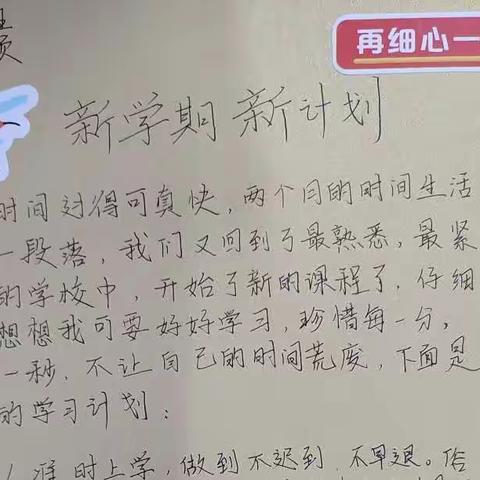 再细心一
新学期 新计划
时间过得可真快,两个月的时间生活
一段落,我们又回到了最熟悉,最紧
的学校中,开始了新的课程了,仔细
想想我可要好好学习,珍惜每一分,
一秒,不让自己的时间荒废,下面是
的学习计划:
1 准时上学,做到不迟到,不早退。俗